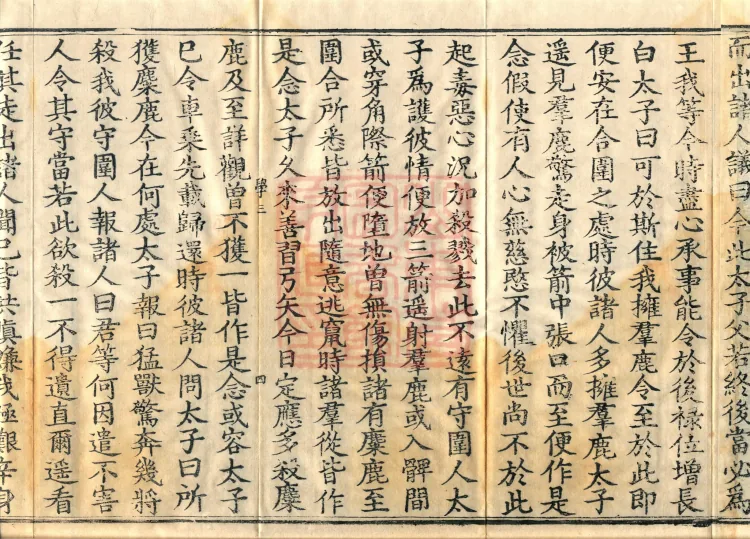 而出諸人議曰今此太子父若終後當必爲
王我等今時盡心承事能令於後祿位增長
白太子曰可於斯住我擁羣鹿令至於此即
便安在合圍之處時彼諸人多擁羣鹿太子
遥見羣鹿驚走身被箭中張口而至便作是
念假使有人心無慈愍不懼後世尚不於此
起毒惡心況加殺戮去此不遠有守圍人太
子爲護彼情便放三箭遥射羣鹿或入髀間
或穿角際箭便墮地曾無傷損諸有麋鹿至
圍合所悉皆放出隨意逃竄時諸羣從皆作
是念太子久來善習弓矢今日定應多殺麋
學三
四
鹿及至詳觀曾不獲一皆作是念或容太子
已令車乘先載歸還時彼諸人問太子曰所
獲麋鹿今在何處太子報曰猛獸驚奔幾將
殺我彼守圍人報諸人曰君等何因遣不害
人令其守當若此欲殺一不得遺直爾遥看
任其走出諸人聞已皆共瞋嫌我極艱辛身